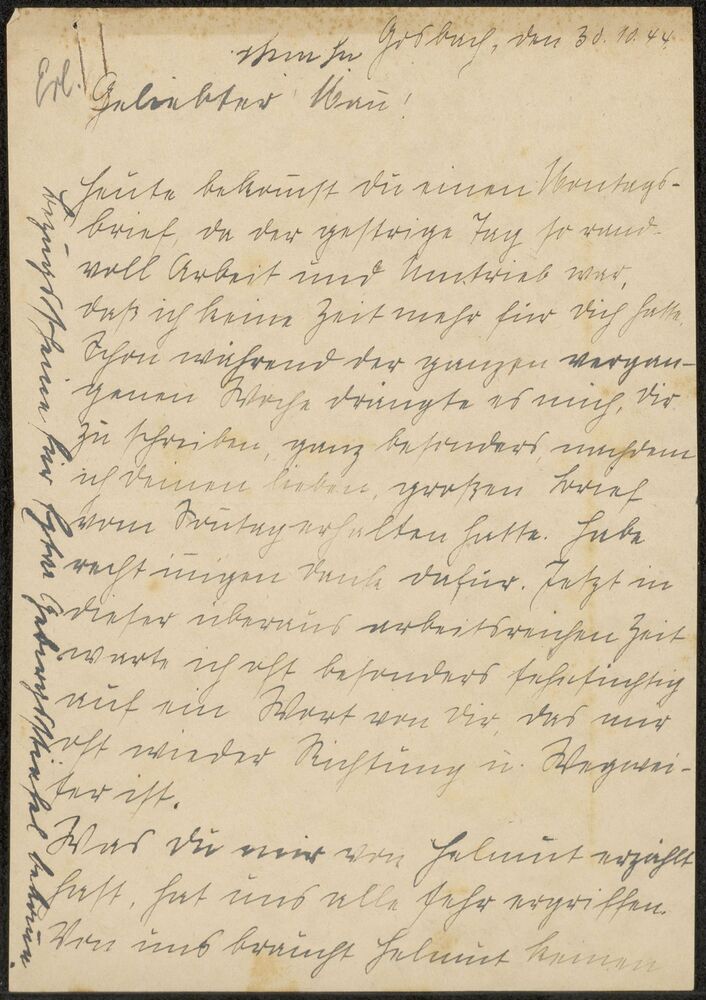 Gosbach, den 30.10.44.
Erl.
Geliebter Mau!
Heute bekommst Du einen Montags-
brief, da der gestrige Tag so rand-
voll Arbeit und Umtrieb war,
daß ich keine Zeit mehr für Dich hatte.
Schon während der ganzen vergan-
genen Woche drängte es mich, Dir
zu schreiben, ganz besonders, nachdem
ich Deinen lieben, großen Brief
vom Sonntag erhalten hatte. Habe
recht innigen Dank dafür. Jetzt in
dieser überaus arbeitsreichen Zeit
warte ich oft besonders sehnsüchtig
auf ein Wort von Dir, das mir
oft wieder Richtung u. Wegwei-
ser ist.
Was Du mir von Helmut erzählt
hast, hat uns alle sehr ergriffen.
Von uns braucht Helmut keinen
Bezugsscheine für Gebirgsstiefel bekomm.